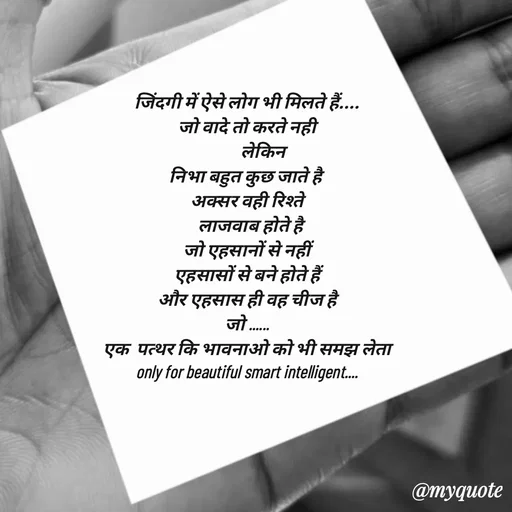 जिंदगी में ऐसे लोग भी मिलते हैं....
जो वादे तो करते नही
लेकिन
निभा बहुत कुछ जाते है
अक्सर वही रिश्ते
लाजवाब होते है
जो एहसानों से नहीं
एहसासों से बने होते हैं
और एहसास ही वह चीज है
जो ......
एक पत्थर कि भावनाओ को भी समझ लेता
only for beautiful smart intelligent....
@myquote